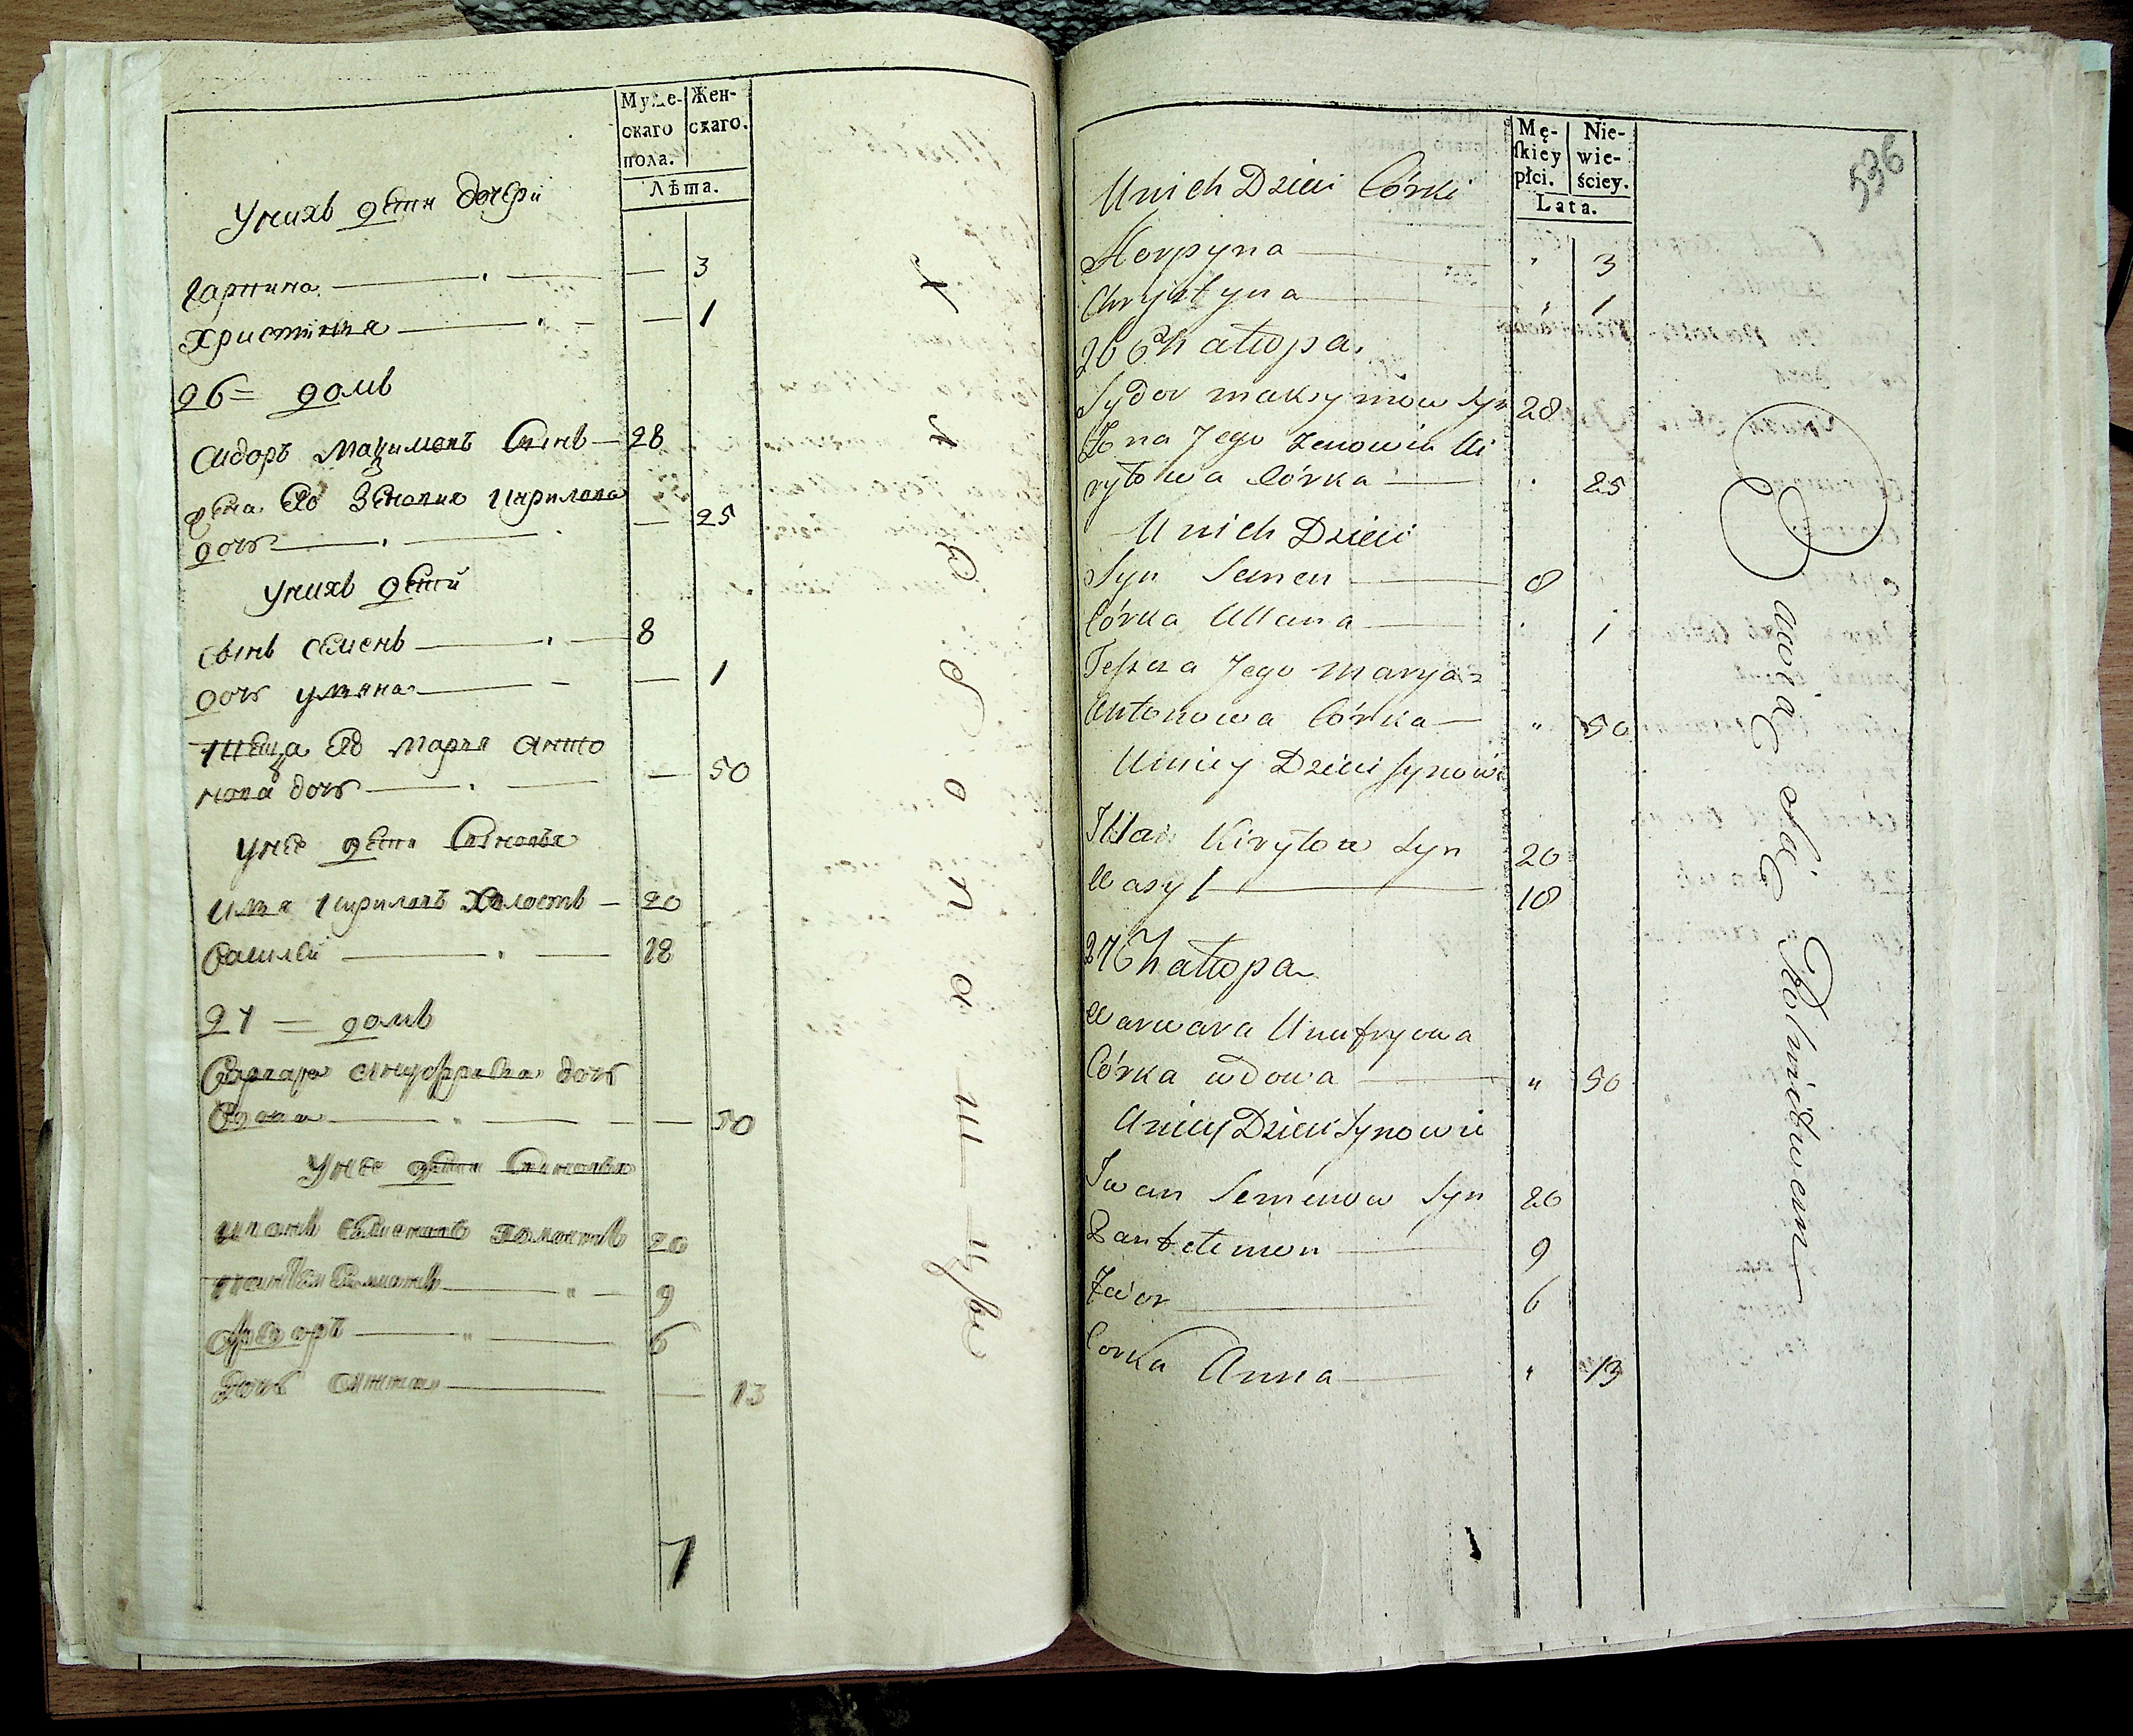 Мужескаго пола. Женскаго.
Лѣта.
У нихъ дети дочери
Гарпина — — 3
Христина — — 1
26= домъ
Сидоръ Мацимовъ Сынъ — 28
жена Его Зеновия Кирилова
дочь — — 25
У нихъ дети
Сынъ Семенъ — 8
дочь Уляна — — 1
теща Его Марья Анто
нова дочь — — 50
У нее дети Сыновья
Кириловъ Холостъ — 20
Василей — 18
27 = домъ
Варвара дочь
Вдова — — 50
У нее дети Сыновья
Иванъ Семеновъ Холостъ 20
— 9
Федоръ — 6
Дочь Анна — — 13
7
Хлебопашцы
536
Mę-skiey płci. Nie-wie-ściey.
Lata.
U nich Dzieci Córki
Horpyna — " 3
Chrystyna — " 1
26 Chałupa
Sydor Maksymow Syn 28
Żona Jego Zenowia Ki
ryłowa Córka — " 25
U nich Dzieci
Syn Semen — 8
Córka Ullana — " 1
Teszcza Jego Marya
Antonowa Córka — " 50
U niey Dzieci Synowie
Kiryłow Syn 20
Wasyl — 18
27 Chałupa
Warwara Unufryowa
Córka wdowa — " 50
U niey Dzieci Synowie
Iwan Semenow Syn 20
Pantelemon — 9
— 6
Corka Anna — " 13
Bawią się Rolnictwem